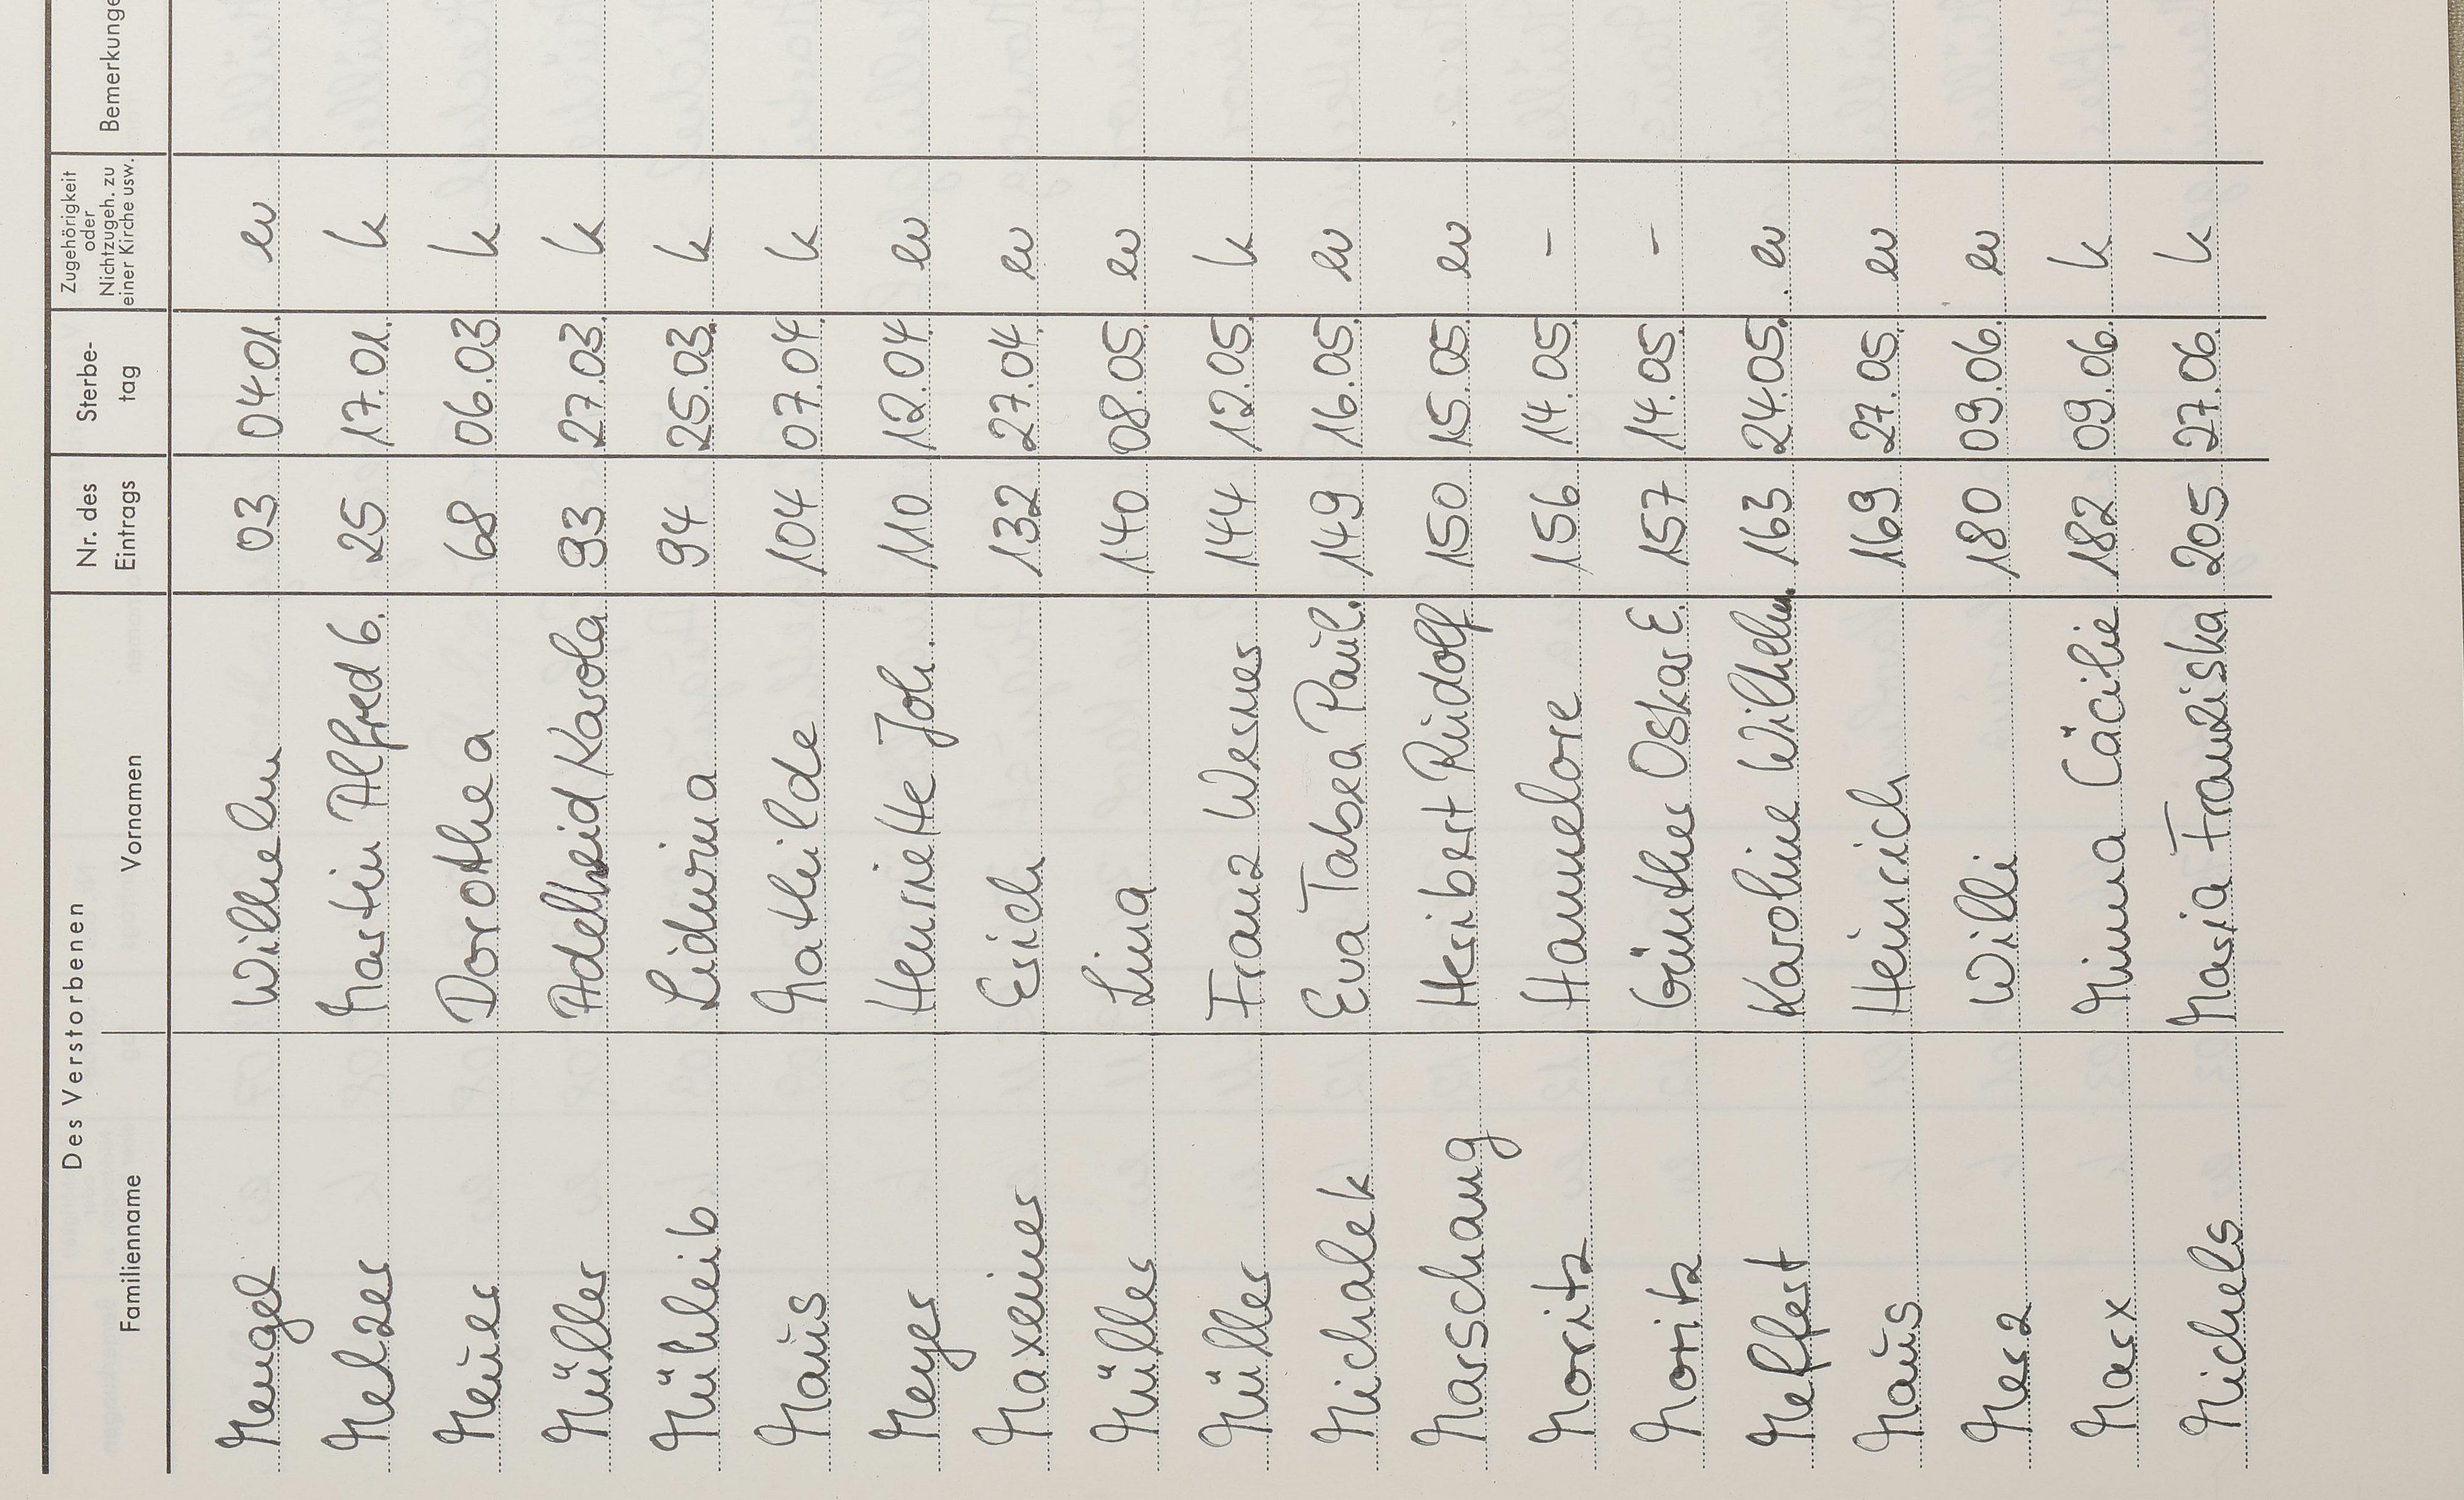 Des Verstorbenen
Familienname Vornamen Nr. des Eintrags Sterbetag Zugehörigkeit oder Nichtzugeh. zu einer Kirche usw. Bemerkunge
Mengel Wilhelm 03 04.01. ev
Melzer Martin Alfred G. 25 17.01. k
Meuer Dorothea 68 06.03 k
Müller Adelheid Karola 93 27.03. k
Mühleib Lidwina 94 25.03. k
Maus Mathilde 104 07.04. k
Meyer Henriette Joh. 110 12.04. ev
Maxeiner Erich 132 27.04. ev
Müller Lina 140 08.05. ev
Müller Franz Werner 144 12.05. k
Michalek Eva Tabea Paul. 149 16.05. ev
Marschang Heribert Rudolf 150 15.05. ev
Moritz Hannelore 156 14.05. -
Moritz Günther Oskar E. 157 14.05. -
Meffert Karoline Wilhelm. 163 24.05. ev
Maus Heinrich 169 27.05. ev
Merz Willi 180 09.06. ev
Marx Minna Cäcilie 182 09.06. k
Michels Maria Franziska 205 27.06. k